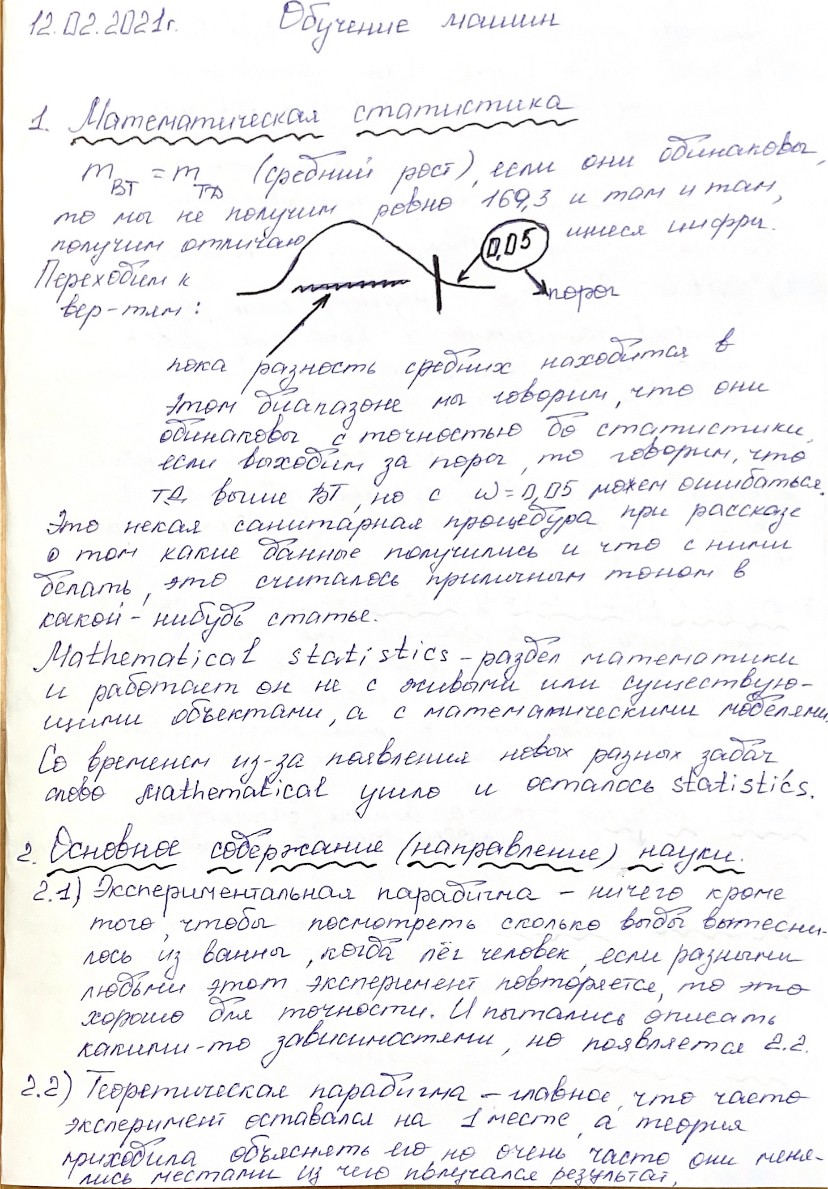 12.02.2021г. Обучение машин
1. Математическая статистика
m ВТ = m ТД (средний рост), если они одинаковы,
то мы не получим ровно 169,3 и там и там,
получим отличаю 0,05 щиеся цифры.
Переходим к
вер-тям: порог
пока разность средних находится в
этом диапазоне мы говорим, что они
одинаковы с точностью до статистики,
если выходим за порог, то говорим, что
ТД выше ВТ, но с ω = 0,05 можем ошибаться.
Это некая санитарная процедура при рассказе
о том какие данные получились и что с ними
делать, это считалось приличным тоном в
какой-нибудь статье.
Mathematical statistics - раздел математики
и работает он не с живыми или существую-
щими объектами, а с математическими моделями.
Со временем из-за появления новых разных задач
слово Mathematical ушло и осталось statistics.
2. Основное содержание (направление) науки.
2.1) Экспериментальная парадигма - ничего кроме
того, чтобы посмотреть сколько воды вытесни-
лось из ванны, когда лёг человек, если разными
людьми этот эксперимент повторяется, то это
хорошо для точности. И пытались описать
какими-то зависимостями, но появляется 2.2.
2.2) Теоретическая парадигма - главное, что часто
эксперимент оставался на 1 месте, а теория
приходила объяснять его, но очень часто они меня-
лись местами из чего получался результат,